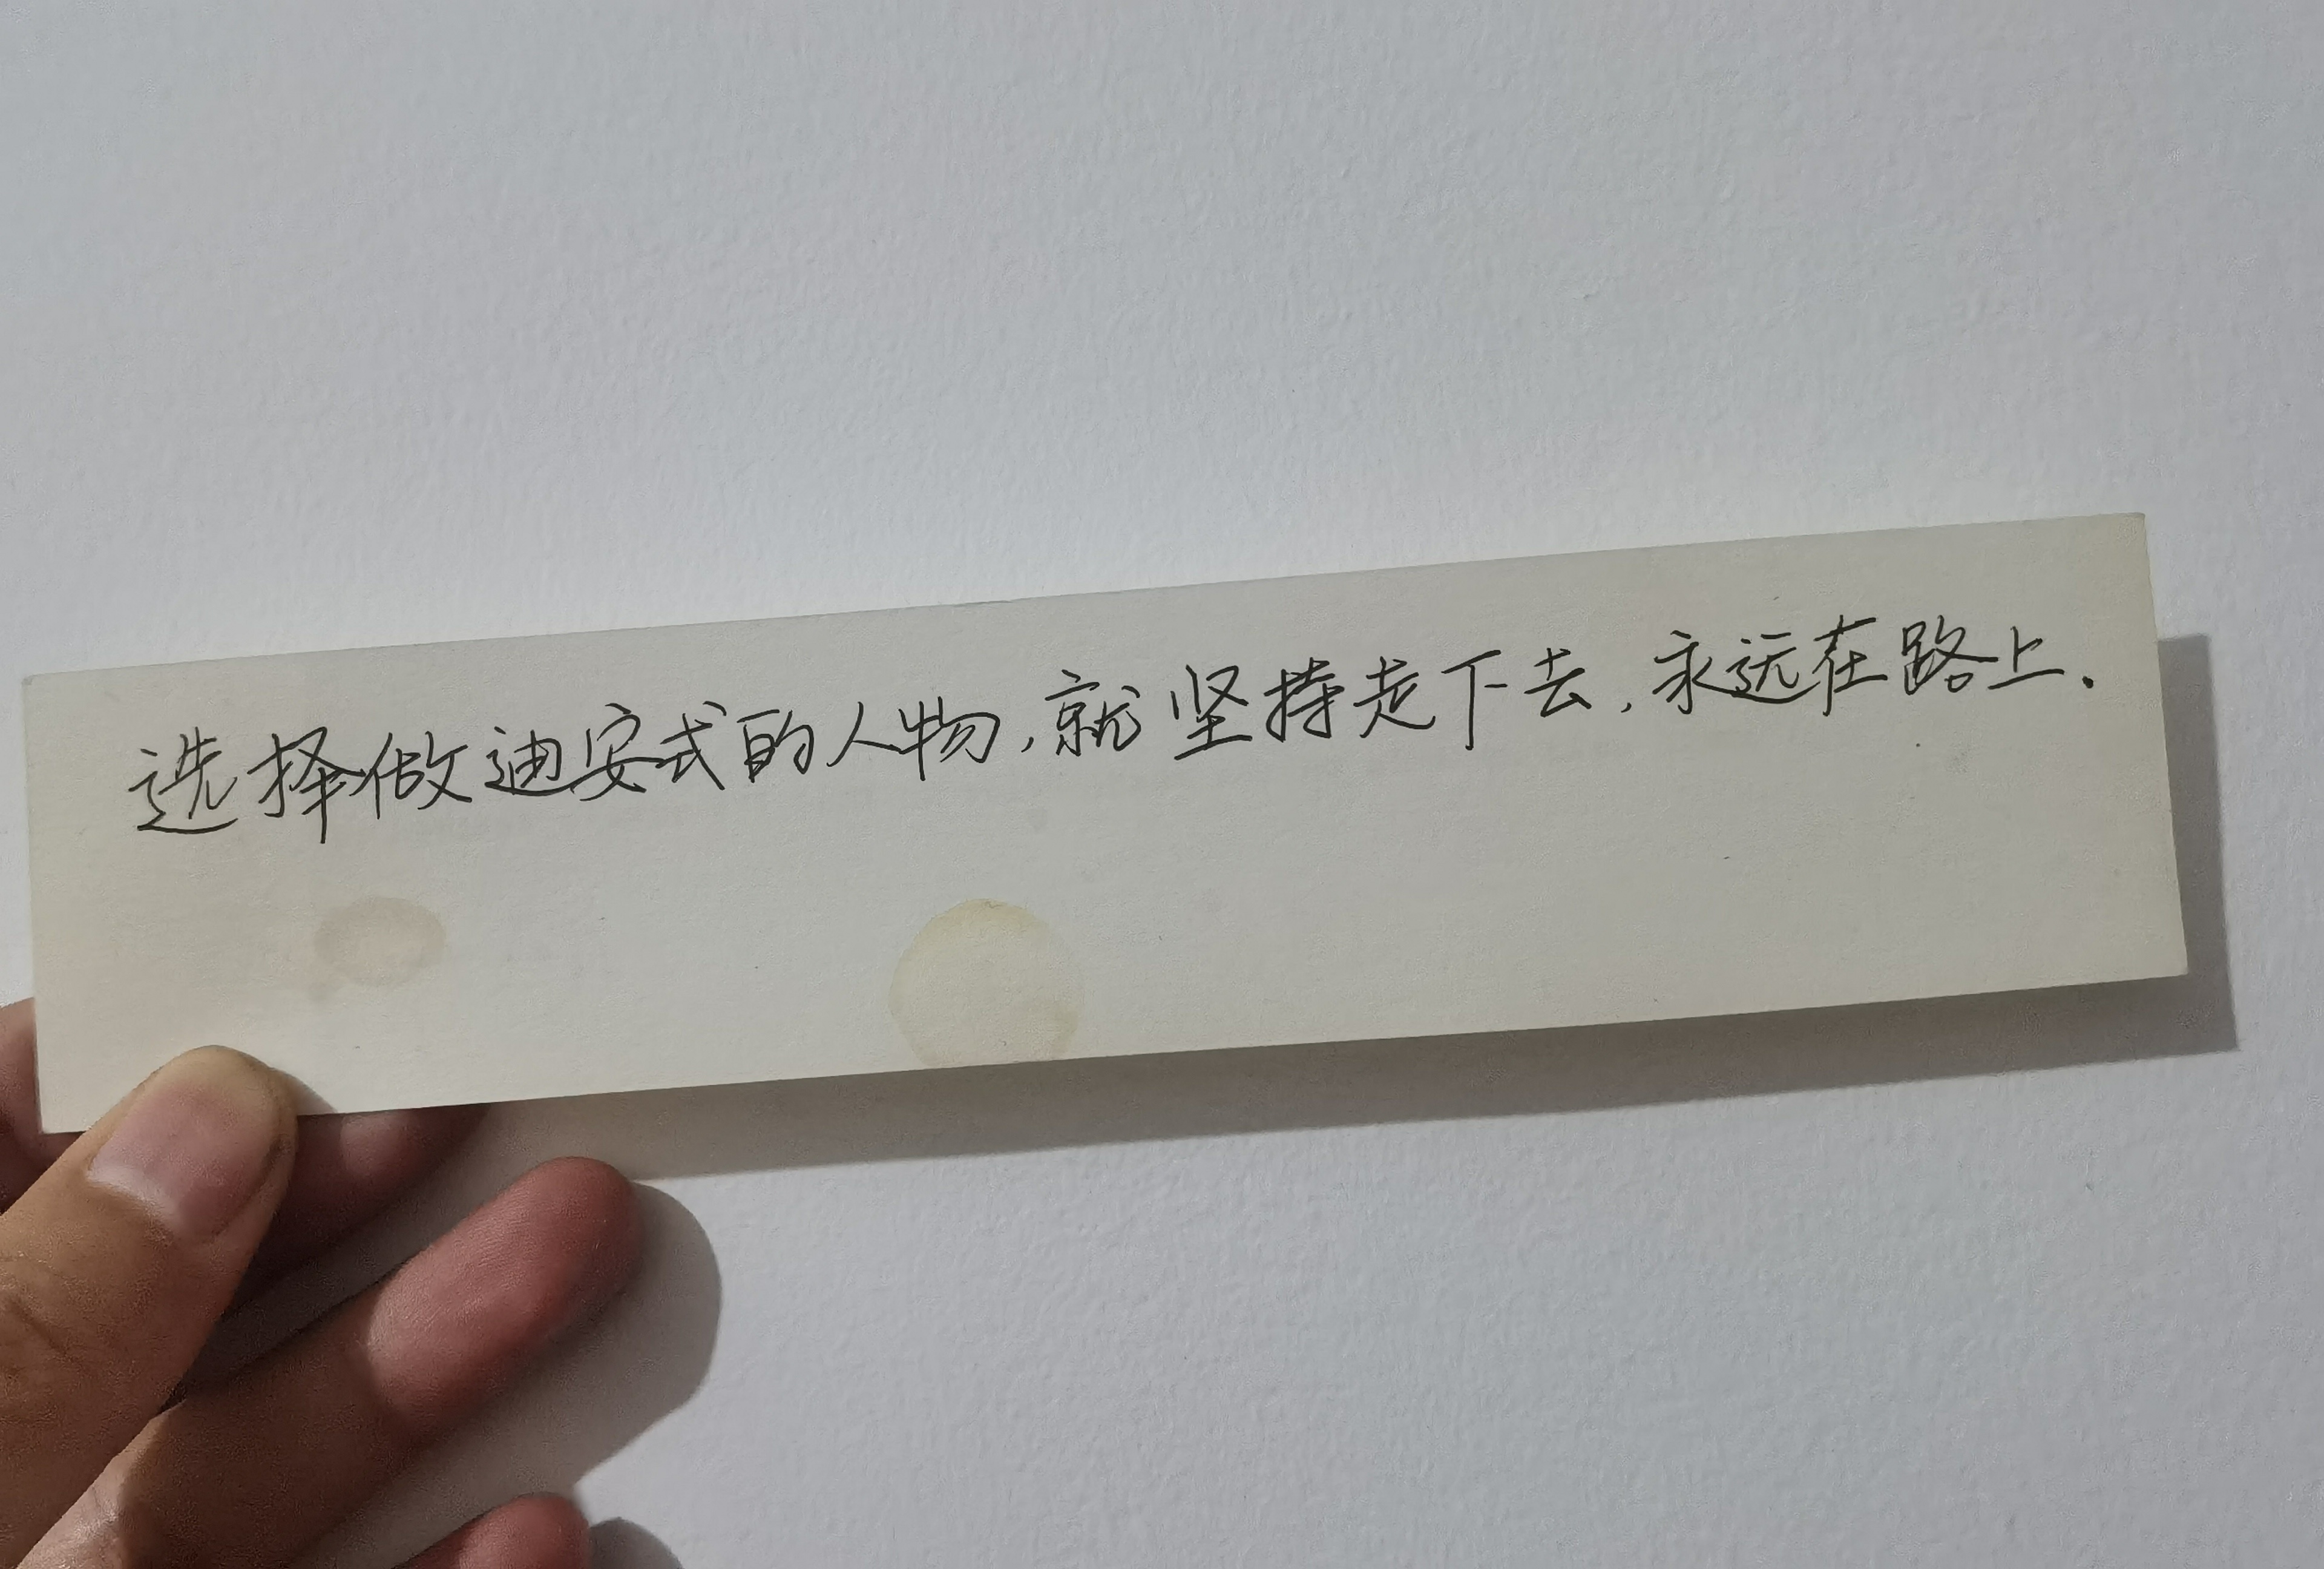 选择做迪安式的人物,就坚持走下去,永远在路上.